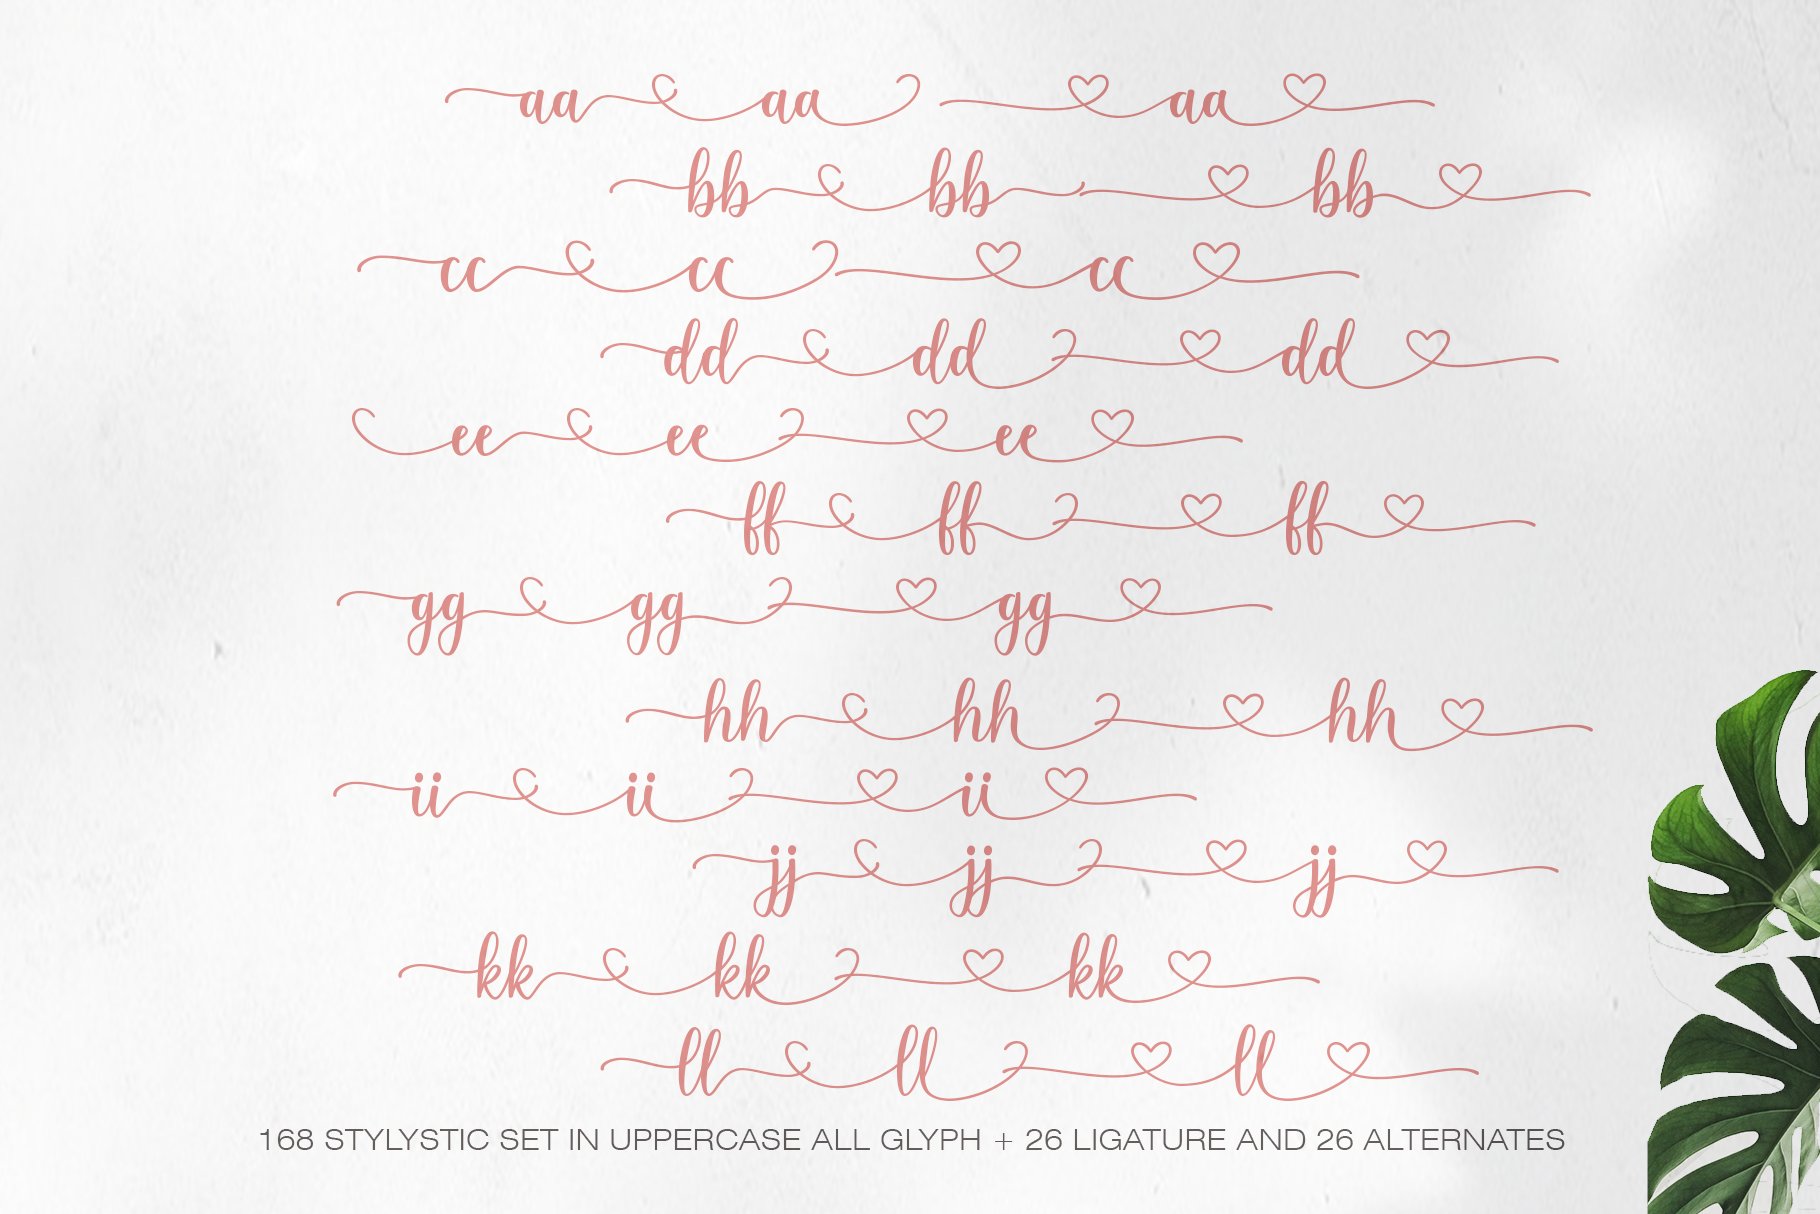 aa aa aa
bb bb bb
cc cc cc
dd dd dd
ee ee ee
ff ff ff
gg gg gg
hh hh hh
ii ii ii
jj jj jj
kk kk kk
ll ll ll
168 STYLYSTIC SET IN UPPERCASE ALL GLYPH + 26 LIGATURE AND 26 ALTERNATES